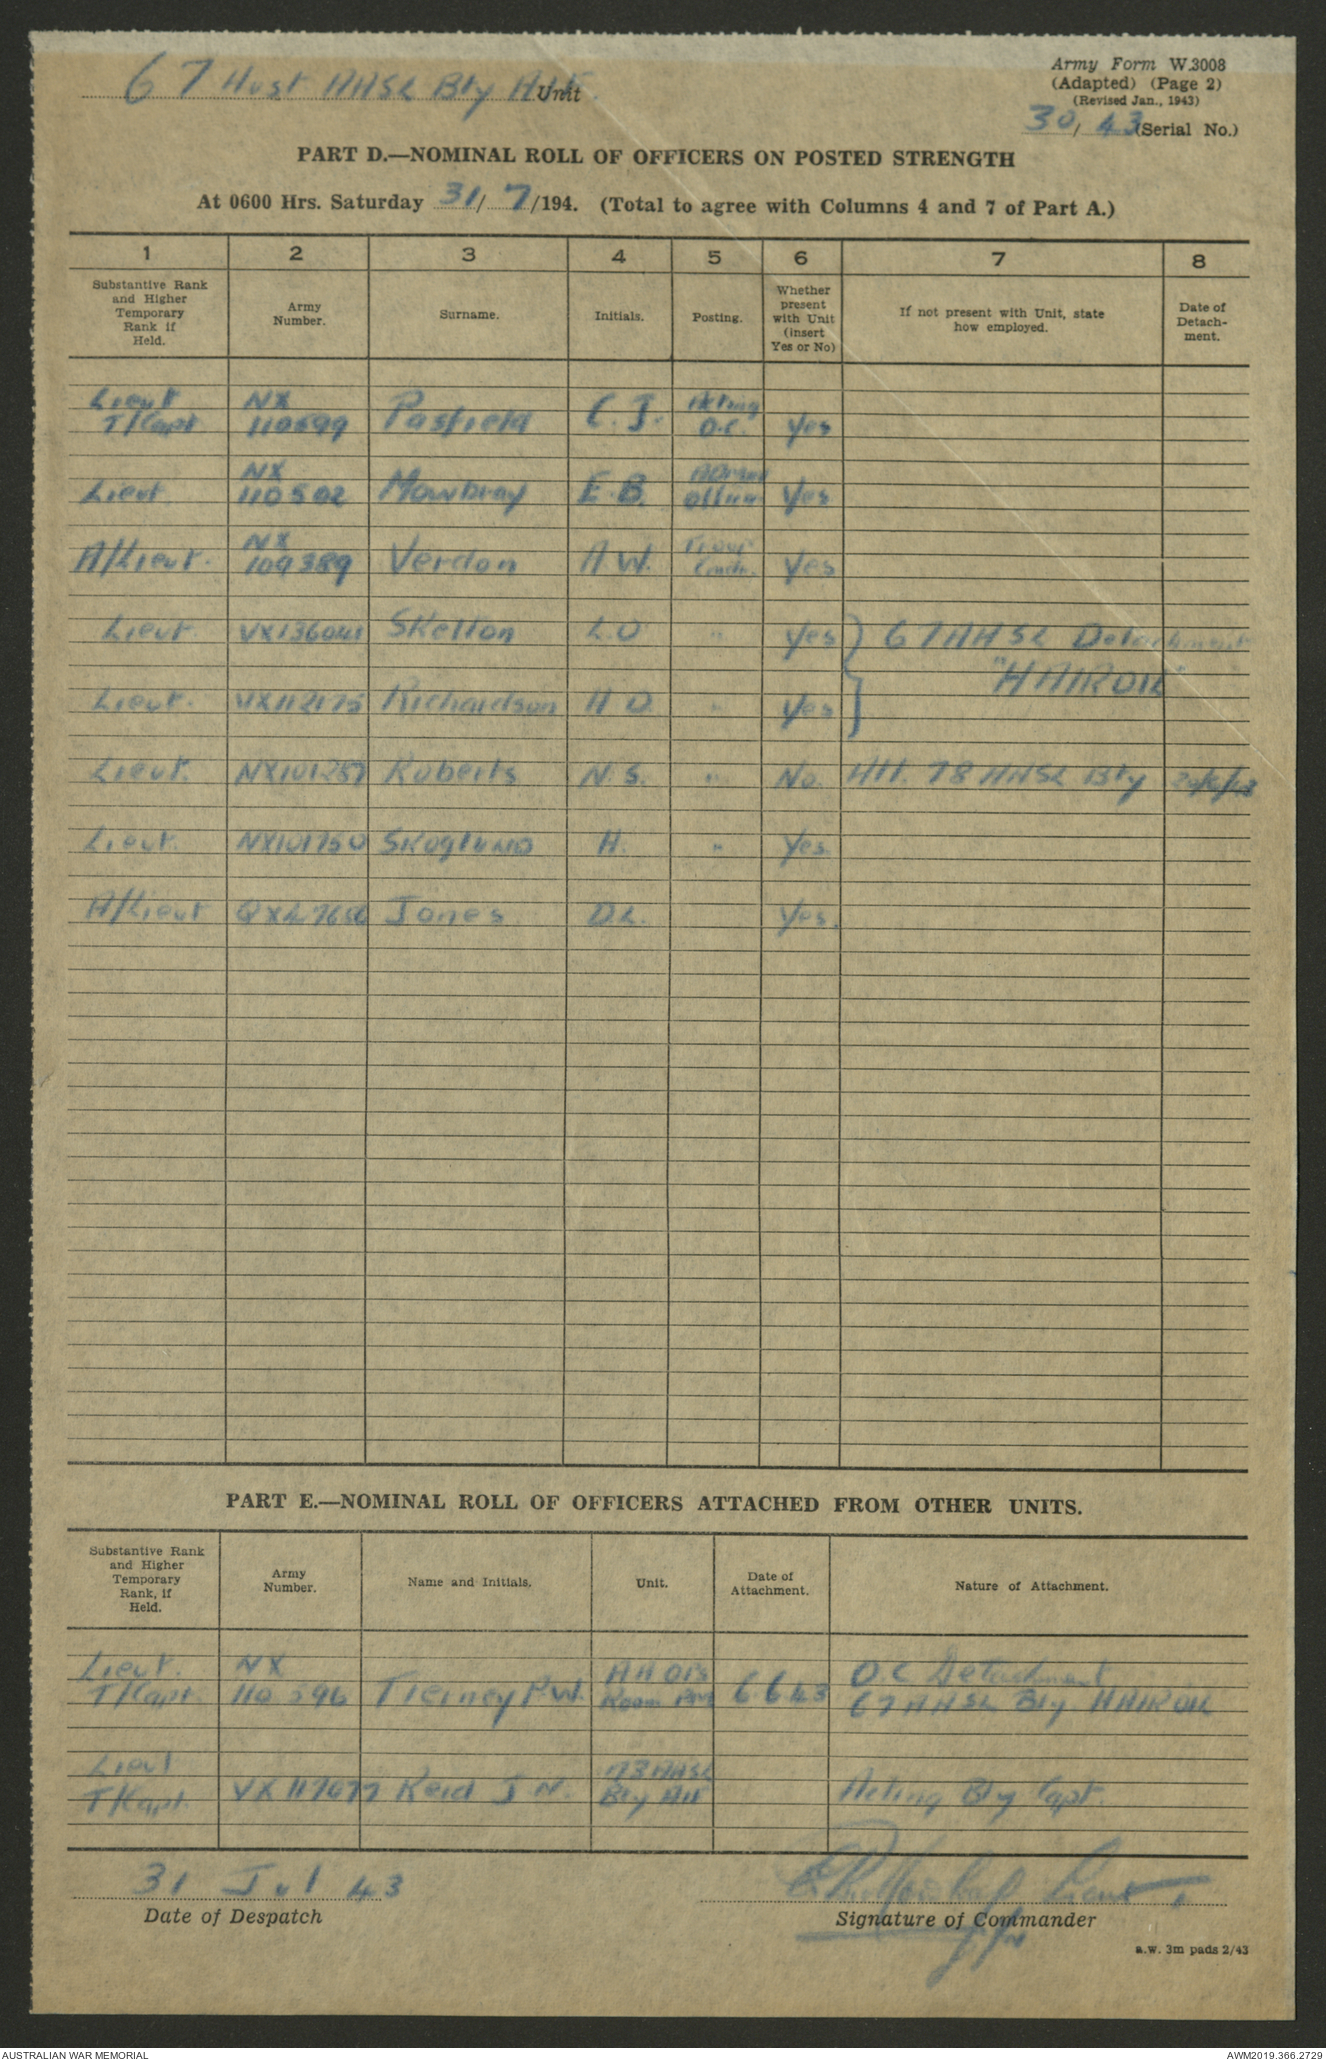 67 Aust AASL Bty AIF. Unit
Army Form W.3008
(Adapted) (Page 2)
(Revised Jan., 1943)
30/43 (Serial No.)
PART D.—NOMINAL ROLL OF OFFICERS ON POSTED STRENGTH
At 0600 Hrs. Saturday 31/7/194. (Total to agree with Columns 4 and 7 of Part A.)
1 2 3 4 5 6 7 8
Substantive Rank and Higher Temporary Rank if Held. Army Number. Surname. Initials. Posting. Whether present with Unit (insert Yes or No) If not present with Unit, state how employed. Date of Detach-ment.
Lieut NX Acting
T/Capt 110599 Pasfield C.J. O.C. Yes
NX Admin
Lieut 110502 Mowbray E.B. Officer Yes
NX Troop
A/Lieut. 109389 Verdon A W. Comdr. Yes
Lieut. VX136041 Skelton L.O " Yes } 67 AASL Detachment
"HAIROIL"
Lieut. VX112175 Richardson H O. " Yes
Lieut. NX101257 Roberts N.S. " No. Att. 78 AASL Bty
Lieut. NX101750 Skoglund H. " Yes.
A/Lieut Jones D.L. Yes.
PART E.—NOMINAL ROLL OF OFFICERS ATTACHED FROM OTHER UNITS.
Substantive Rank and Higher Temporary Rank, if Held. Army Number. Name and Initials. Unit. Date of Attachment. Nature of Attachment.
Lieut. NX AA Ops O.C Detachment
T/Capt. 110596 Tierney P.W. Room 6.6.43 67 AASL Bty HAIROIL
Lieut 73 AASL
T/Capt. VX117677 Reid J N. Bty AIF Acting Bty Capt.
31 Jul 43 Lieut
Date of Despatch Signature of Commander
a.w. 3m pads 2/43
AUSTRALIAN WAR MEMORIAL AWM2019.366.2729